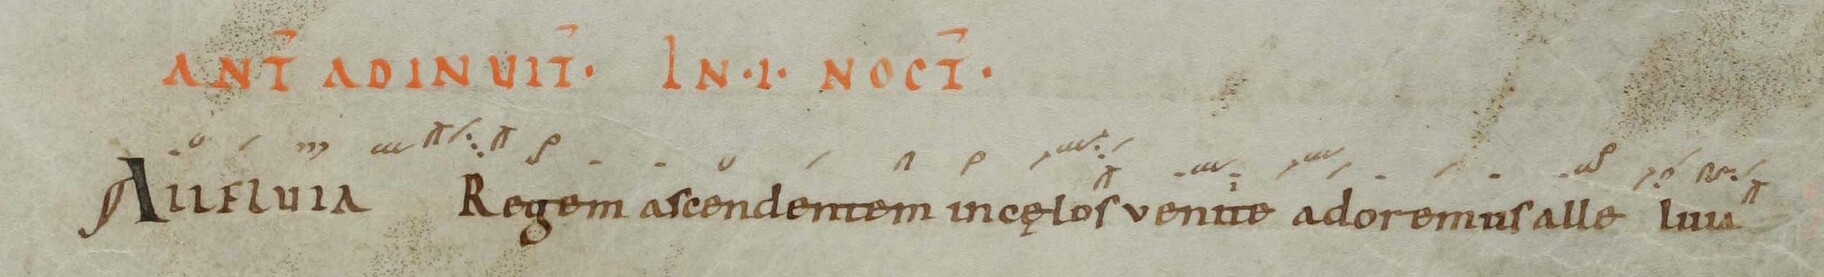 ANT̄ ADINUIT̄· IN·I· NOCT̄·
Alleluia Regem ascendentem incęlos venite adoremus alle luia